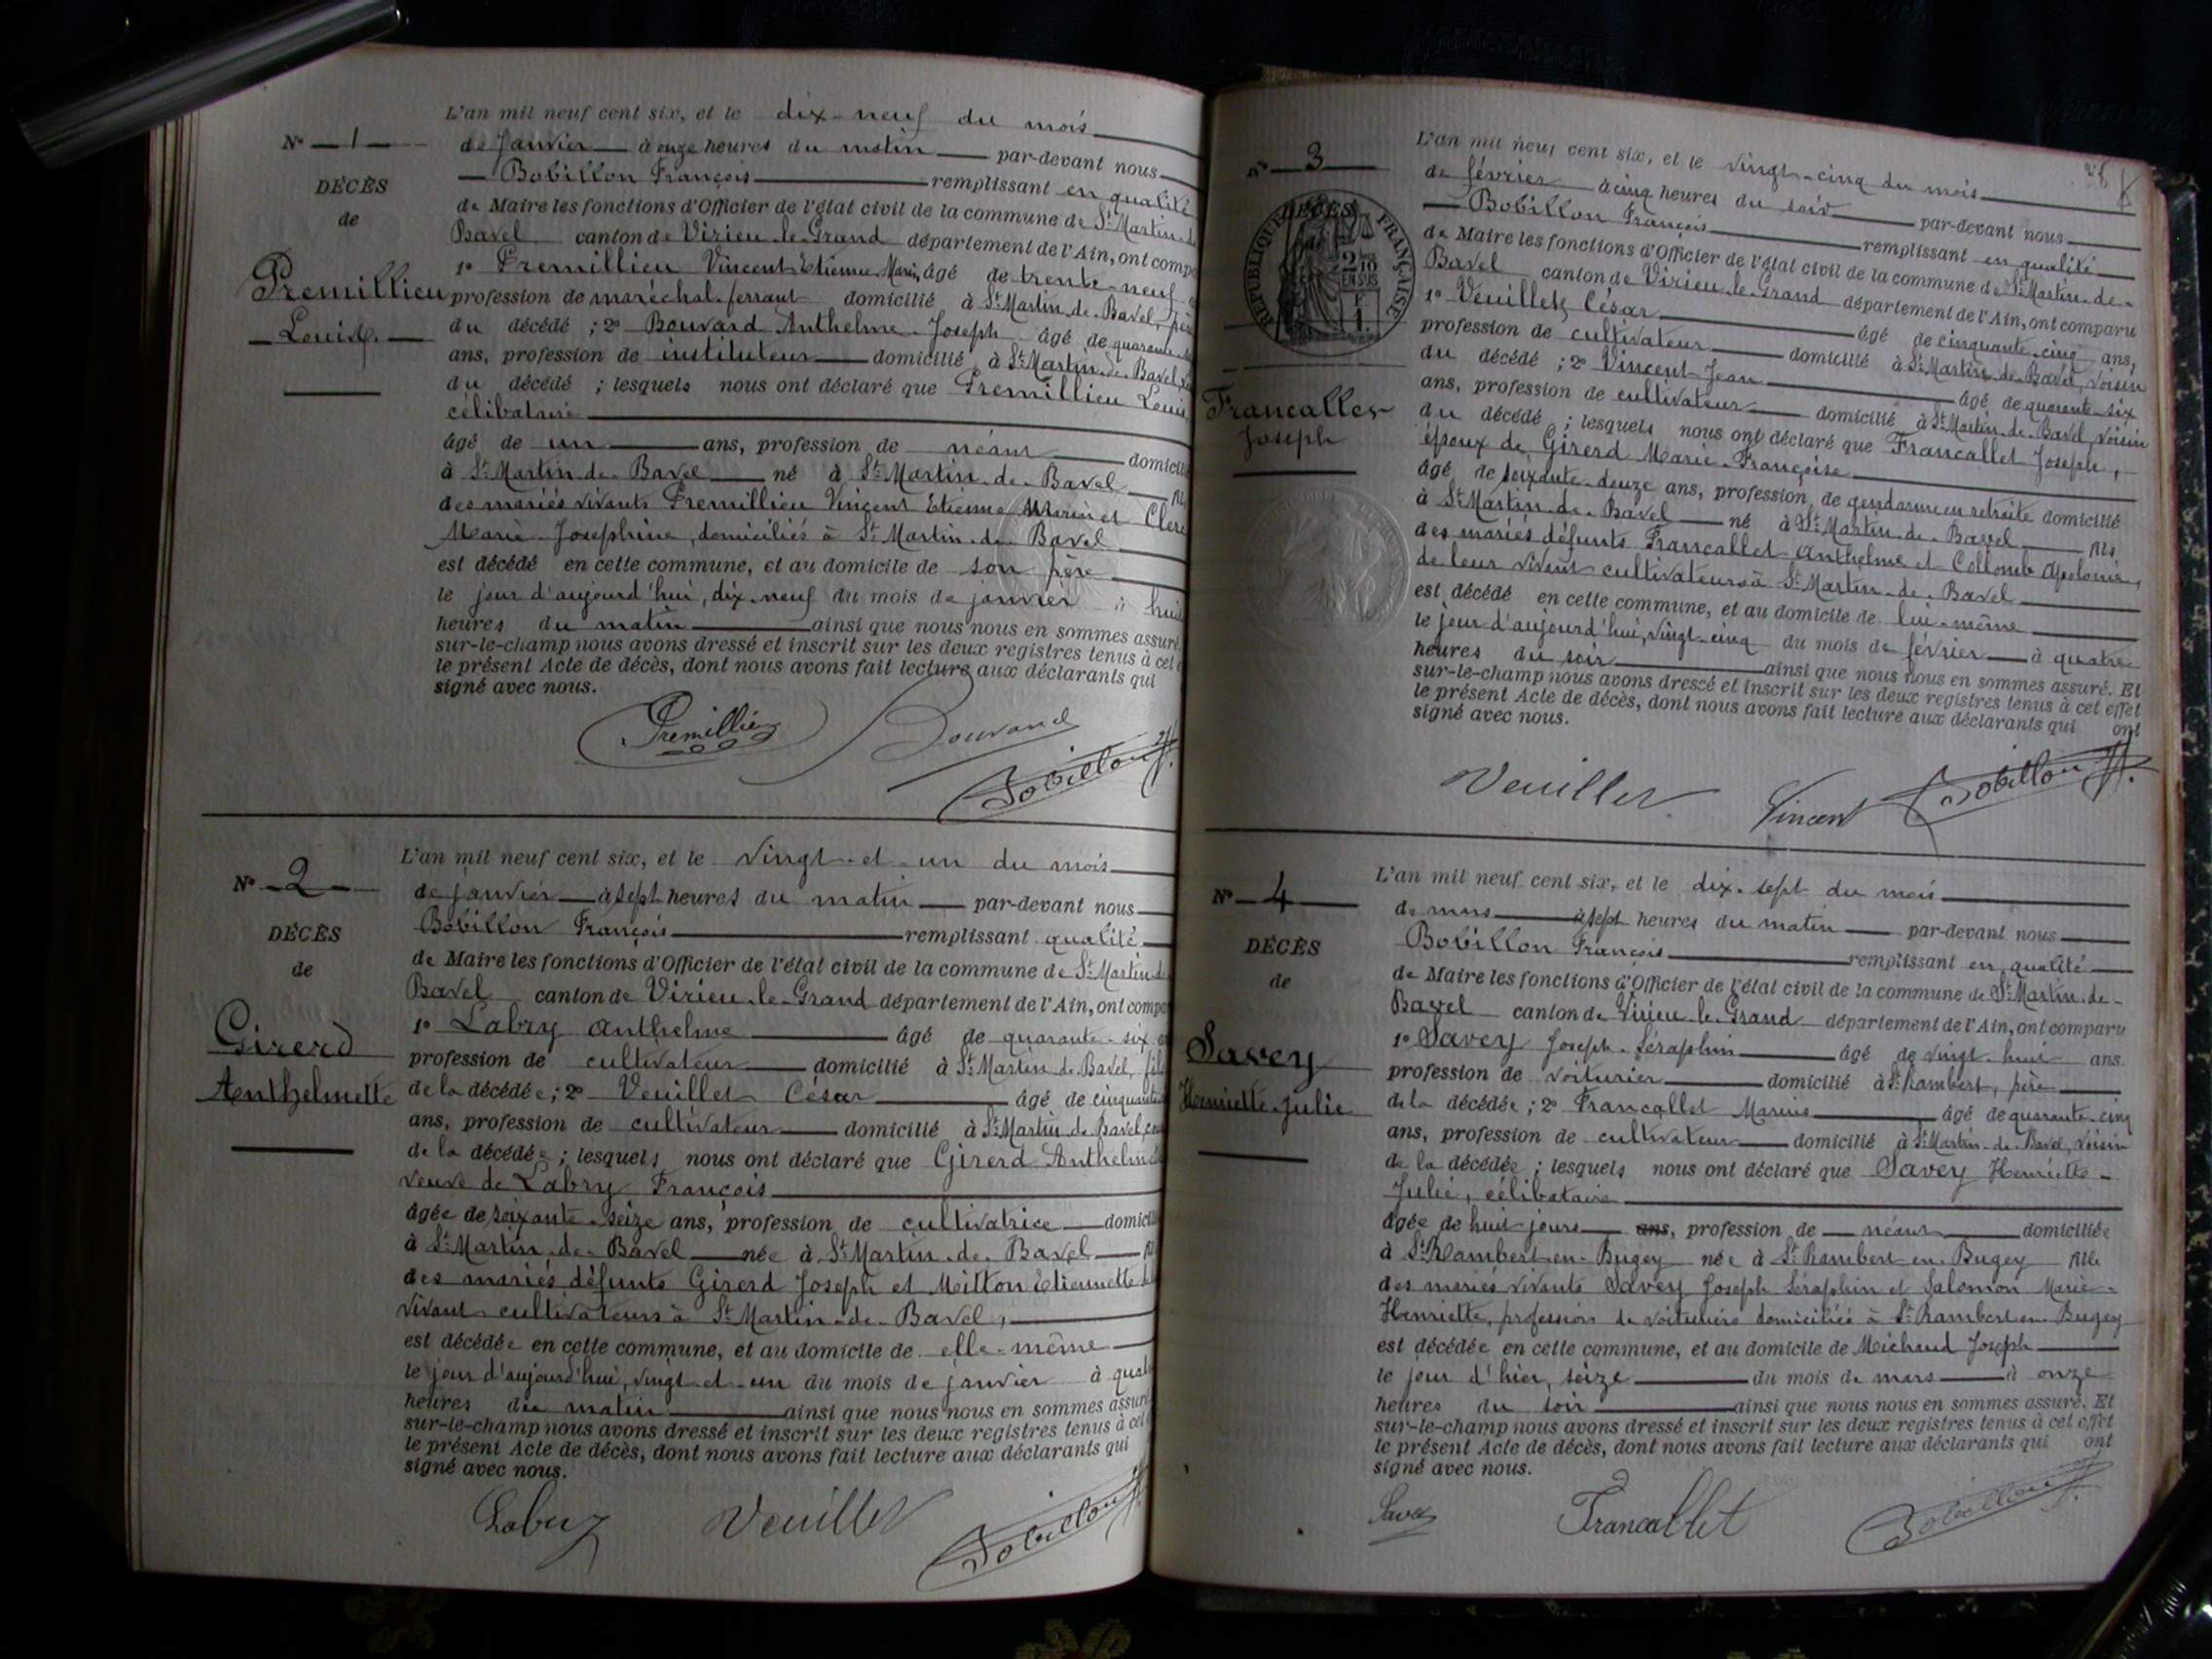 L'an mil neuf cent six, et le dix-neuf du mois
N° 1
de Janvier à onze heures du matin par-devant nous
Bobillon François remplissant en qualité
DÉCÈS
de Maire les fonctions d'Officier de l'état civil de la commune de St Martin-de
de
Bavel canton de Virieu-le-Grand département de l'Ain, ont comp
1° Premillieu Vincent Etienne Marin, âgé de trente-neuf
Premillieu
profession de maréchal-ferrant domicilié à St Martin-de-Bavel, père
Louis
du décédé ; 2° Bouvard Anthelme-Joseph âgé de quarante
ans, profession de instituteur domicilié à St Martin-de-Bavel,
du décédé ; lesquels nous ont déclaré que Premillieu Louis
célibataire
âgé de un ans, profession de néant domicili
à St Martin-de-Bavel né à St Martin-de-Bavel fils
des mariés vivants Premillieu Vincent Etienne Marin et Clerc
Marie-Josephine, domiciliés à St Martin-de-Bavel
est décédé en cette commune, et au domicile de son père
le jour d'aujourd'hui, dix-neuf du mois de janvier à huit
heures du matin ainsi que nous nous en sommes assuré.
sur-le-champ nous avons dressé et inscrit sur les deux registres tenus à cet
le présent Acte de décès, dont nous avons fait lecture aux déclarants qui
signé avec nous.
Premillieu Bouvard
Bobillon
L'an mil neuf cent six, et le vingt-et-un du mois
N° 2
de janvier à sept heures du matin par-devant nous
Bobillon François remplissant qualité
DÉCÈS
de Maire les fonctions d'Officier de l'état civil de la commune de St Martin-de
de
Bavel canton de Virieu-le-Grand département de l'Ain, ont compa
1° Labry Anthelme âgé de quarante-six
Girerd
profession de cultivateur domicilié à St Martin-de-Bavel, fils
Anthelmette
de la décédée ; 2° Veuillet César âgé de cinquante
ans, profession de cultivateur domicilié à St Martin-de-Bavel,
de la décédée ; lesquels nous ont déclaré que Girerd Anthelme
veuve de Labry François
âgée de soixante-seize ans, profession de cultivatrice domicili
à St Martin-de-Bavel née à St Martin-de-Bavel fil
des mariés défunts Girerd Joseph et Mitton Etiennette
vivant cultivateurs à St Martin-de-Bavel,
est décédée en cette commune, et au domicile de elle-même
le jour d'aujourd'hui, vingt-et-un du mois de janvier à quat
heures du matin ainsi que nous nous en sommes assuré
sur-le-champ nous avons dressé et inscrit sur les deux registres tenus à cet
le présent Acte de décès, dont nous avons fait lecture aux déclarants qui
signé avec nous.
Labry Veuillet Bobillon
L'an mil neuf cent six, et le vingt-cinq du mois
N° 3
de février à cinq heures du soir par-devant nous
Bobillon François remplissant en qualité
DÉCÈS
RÉPUBLIQUE FRANÇAISE
2/10 EN SUS
de Maire les fonctions d'Officier de l'état civil de la commune de St Martin-de-
Bavel canton de Virieu-le-Grand département de l'Ain, ont comparu
1° Veuillet César âgé de cinquante-cinq ans,
profession de cultivateur domicilié à St Martin-de-Bavel, voisin
du décédé ; 2° Vincent Jean âgé de quarante-six
ans, profession de cultivateur domicilié à St Martin-de-Bavel, voisin
Francallet
Joseph
du décédé ; lesquels nous ont déclaré que Francallet Joseph,
époux de Girerd Marie-Françoise
âgé de soixante-douze ans, profession de gendarme en retraite domicilié
à St Martin-de-Bavel né à St Martin-de-Bavel fils
des mariés défunts Francallet Anthelme et Collomb Apolonie,
de leur vivant cultivateurs à St Martin-de-Bavel
est décédé en cette commune, et au domicile de lui-même
le jour d'aujourd'hui, vingt-cinq du mois de février à quatre
heures du soir ainsi que nous nous en sommes assuré. Et
sur-le-champ nous avons dressé et inscrit sur les deux registres tenus à cet effet
le présent Acte de décès, dont nous avons fait lecture aux déclarants qui ont
signé avec nous.
Veuillet Vincent Bobillon
L'an mil neuf cent six, et le dix-sept du mois
N° 4
de mars à sept heures du matin par-devant nous
Bobillon François remplissant en qualité
DÉCÈS
de Maire les fonctions d'Officier de l'état civil de la commune de St Martin-de-
de
Bavel canton de Virieu-le-Grand département de l'Ain, ont comparu
1° Savey Joseph-Séraphin âgé de vingt-huit ans
Savey
profession de voiturier domicilié à St Rambert, père
Henriette-Julie
de la décédée ; 2° Francallet Marius âgé de quarante-cinq
ans, profession de cultivateur domicilié à St Martin-de-Bavel, voisin
de la décédée ; lesquels nous ont déclaré que Savey Henriette-
Julie, célibataire
âgée de huit jours ans, profession de néant domiciliée
à St Rambert-en-Bugey née à St Rambert-en-Bugey fille
des mariés vivants Savey Joseph Séraphin et Salomon Marie-
Henriette, profession de voituriers domiciliés à St Rambert-en-Bugey
est décédée en cette commune, et au domicile de Michaud Joseph
le jour d'hier, seize du mois de mars à onze
heures du soir ainsi que nous nous en sommes assuré. Et
sur-le-champ nous avons dressé et inscrit sur les deux registres tenus à cet effet
le présent Acte de décès, dont nous avons fait lecture aux déclarants qui ont
signé avec nous.
Savey Francallet Bobillon